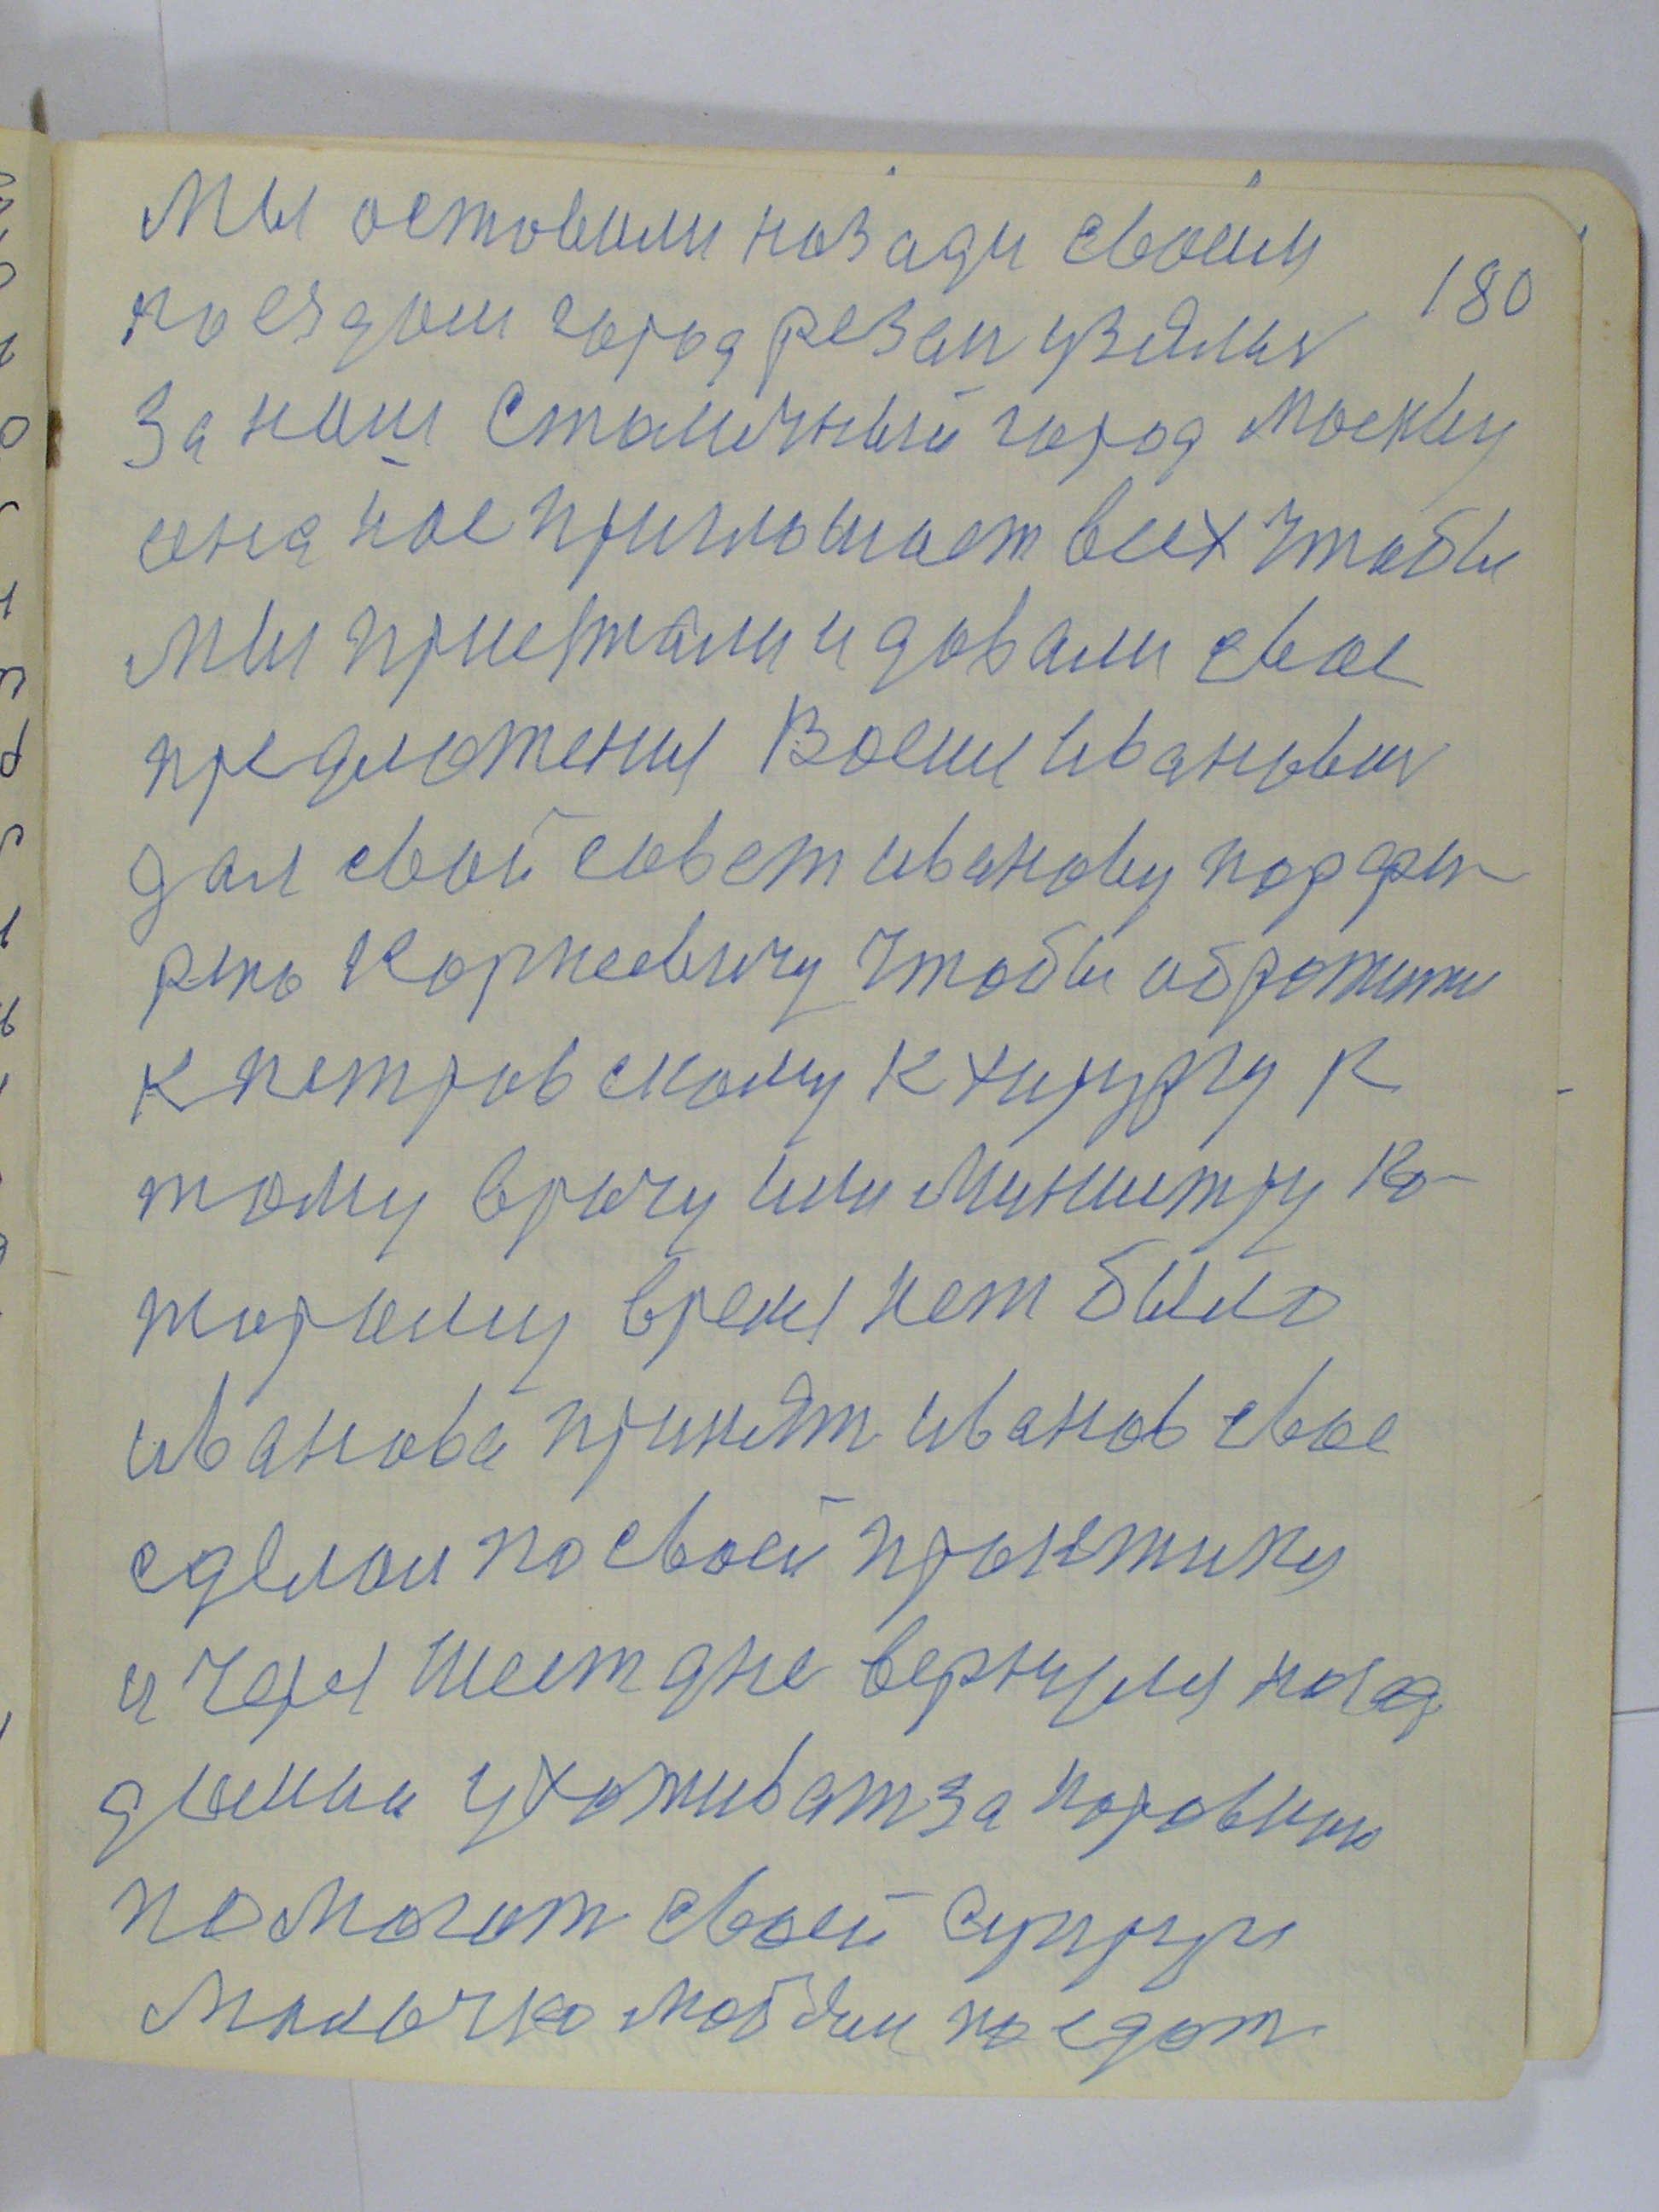 Мы оставили назади своим
180
поездом город резан узялис
За наш Столичный город Москву
она нас приглашает всех Чтобы
Мы приежтали и давали свое
предложения Васил Иванович
дал свой совет иванову порфи
рию Корнеевичу Чтобы обротится
к петровскому к хирургу к
тому врачу или Министру ко-
торому время нет было
иванова принят иванов свое
сделал по своей практики
и через шест дне вернулся назад
домы ухоживат за коровкию
помогат своей супруги
Молочко Мобыи поедат